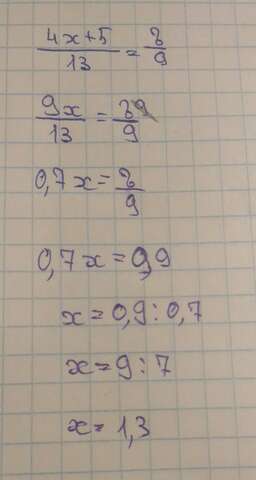 (4x+5)/13 = 8/9
9x/13 = 89/9
0,7x = 8/9
0,7x = 0,9
x = 0,9 : 0,7
x = 9 : 7
x = 1,3